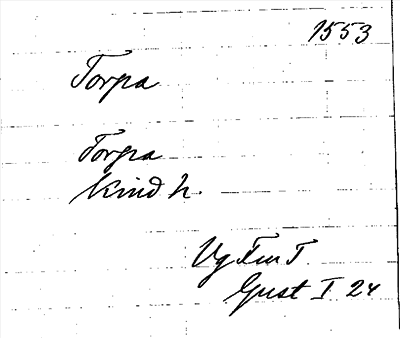 1553
Torpa
Torpa
Kind h.
Vg Fur T
Gust I 24